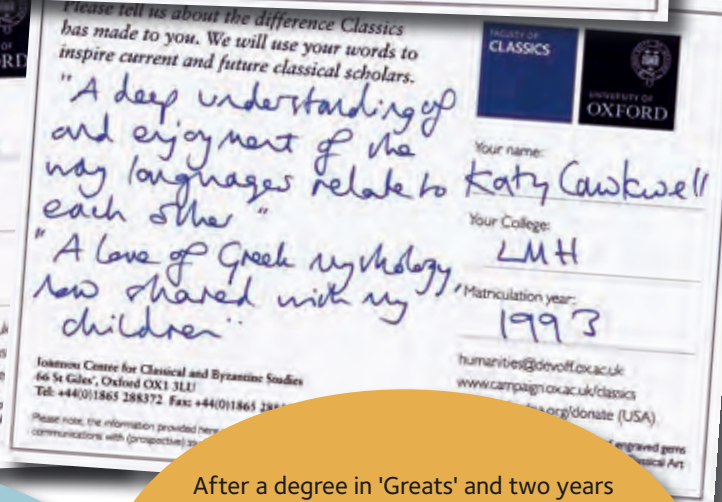 Please tell us about the difference Classics
has made to you. We will use your words to
inspire current and future classical scholars.
"A deep understanding of
and enjoyment of the
way languages relate to
each other"
"A love of Greek mythology,
now shared with my
children"
Ioannou Centre for Classical and Byzantine Studies
66 St Giles', Oxford OX1 3LU
Tel: +44(0)1865 288372 Fax: +44(0)1865
Please note, the information provided here
communications with (prospective)
FACULTY OF
CLASSICS
UNIVERSITY OF
OXFORD
Your name:
Katy Cawkwell
Your College:
LMH
Matriculation year:
1993
humanities@devoff.ox.ac.uk
www.campaign.ox.ac.uk/classics
org/donate (USA)
engraved gems
Classical Art
After a degree in 'Greats' and two years